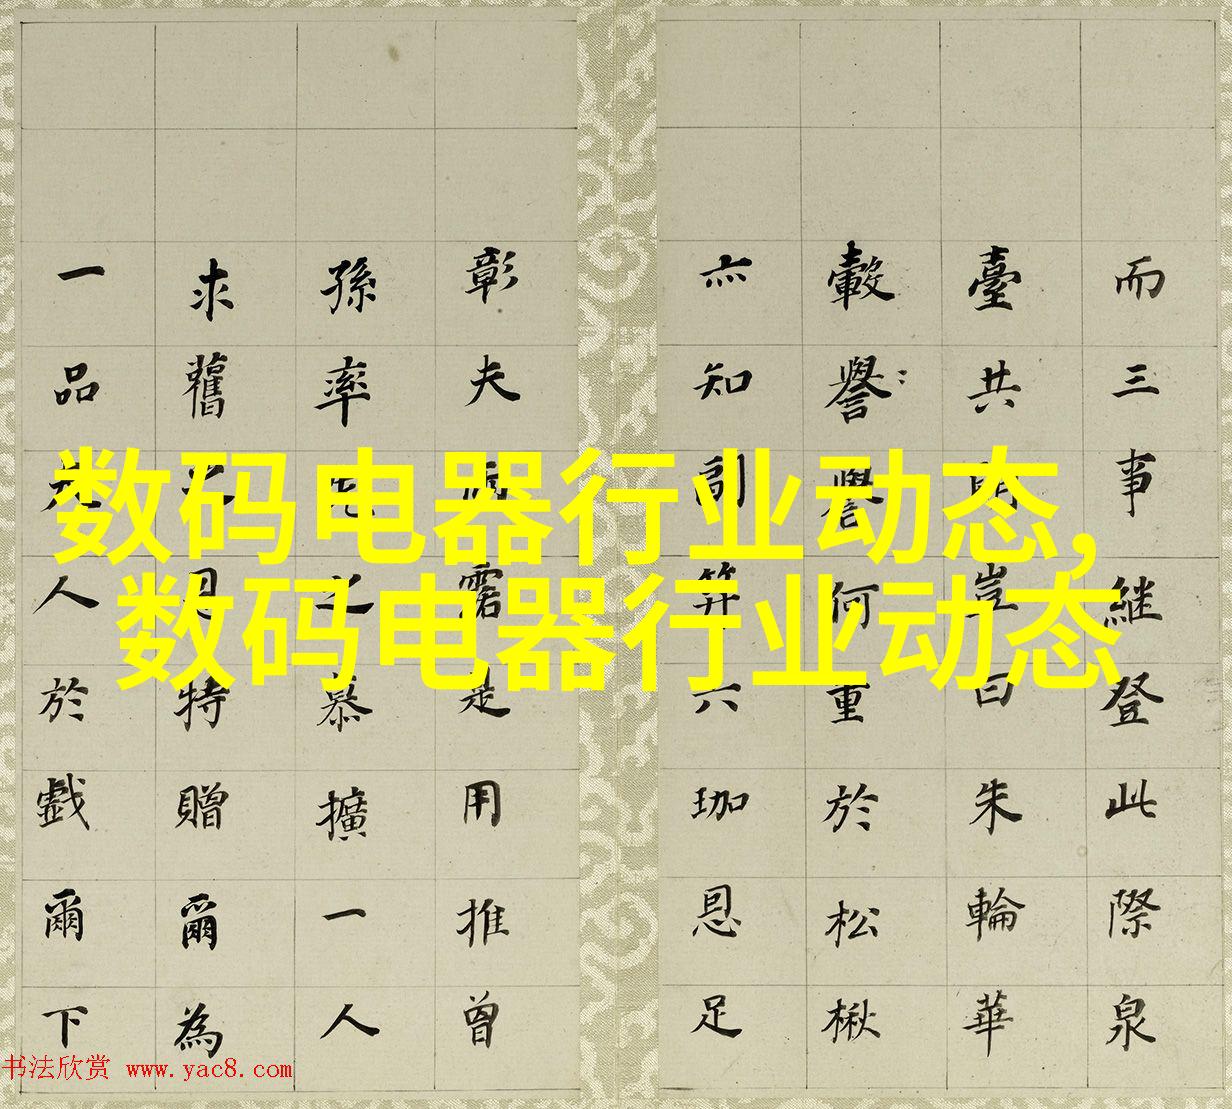 数码电器行业动态,
数码电器行业动态
而三事継登此際泉
臺共豈曰朱輪華
轂譽譽何重於松楸
亦知副笄六珈恩足
彰夫露是用推曾
孫率之慕擴一人
求舊恩特贈爾為
一品夫人於戲爾下
书法欣赏 www.yac8.com